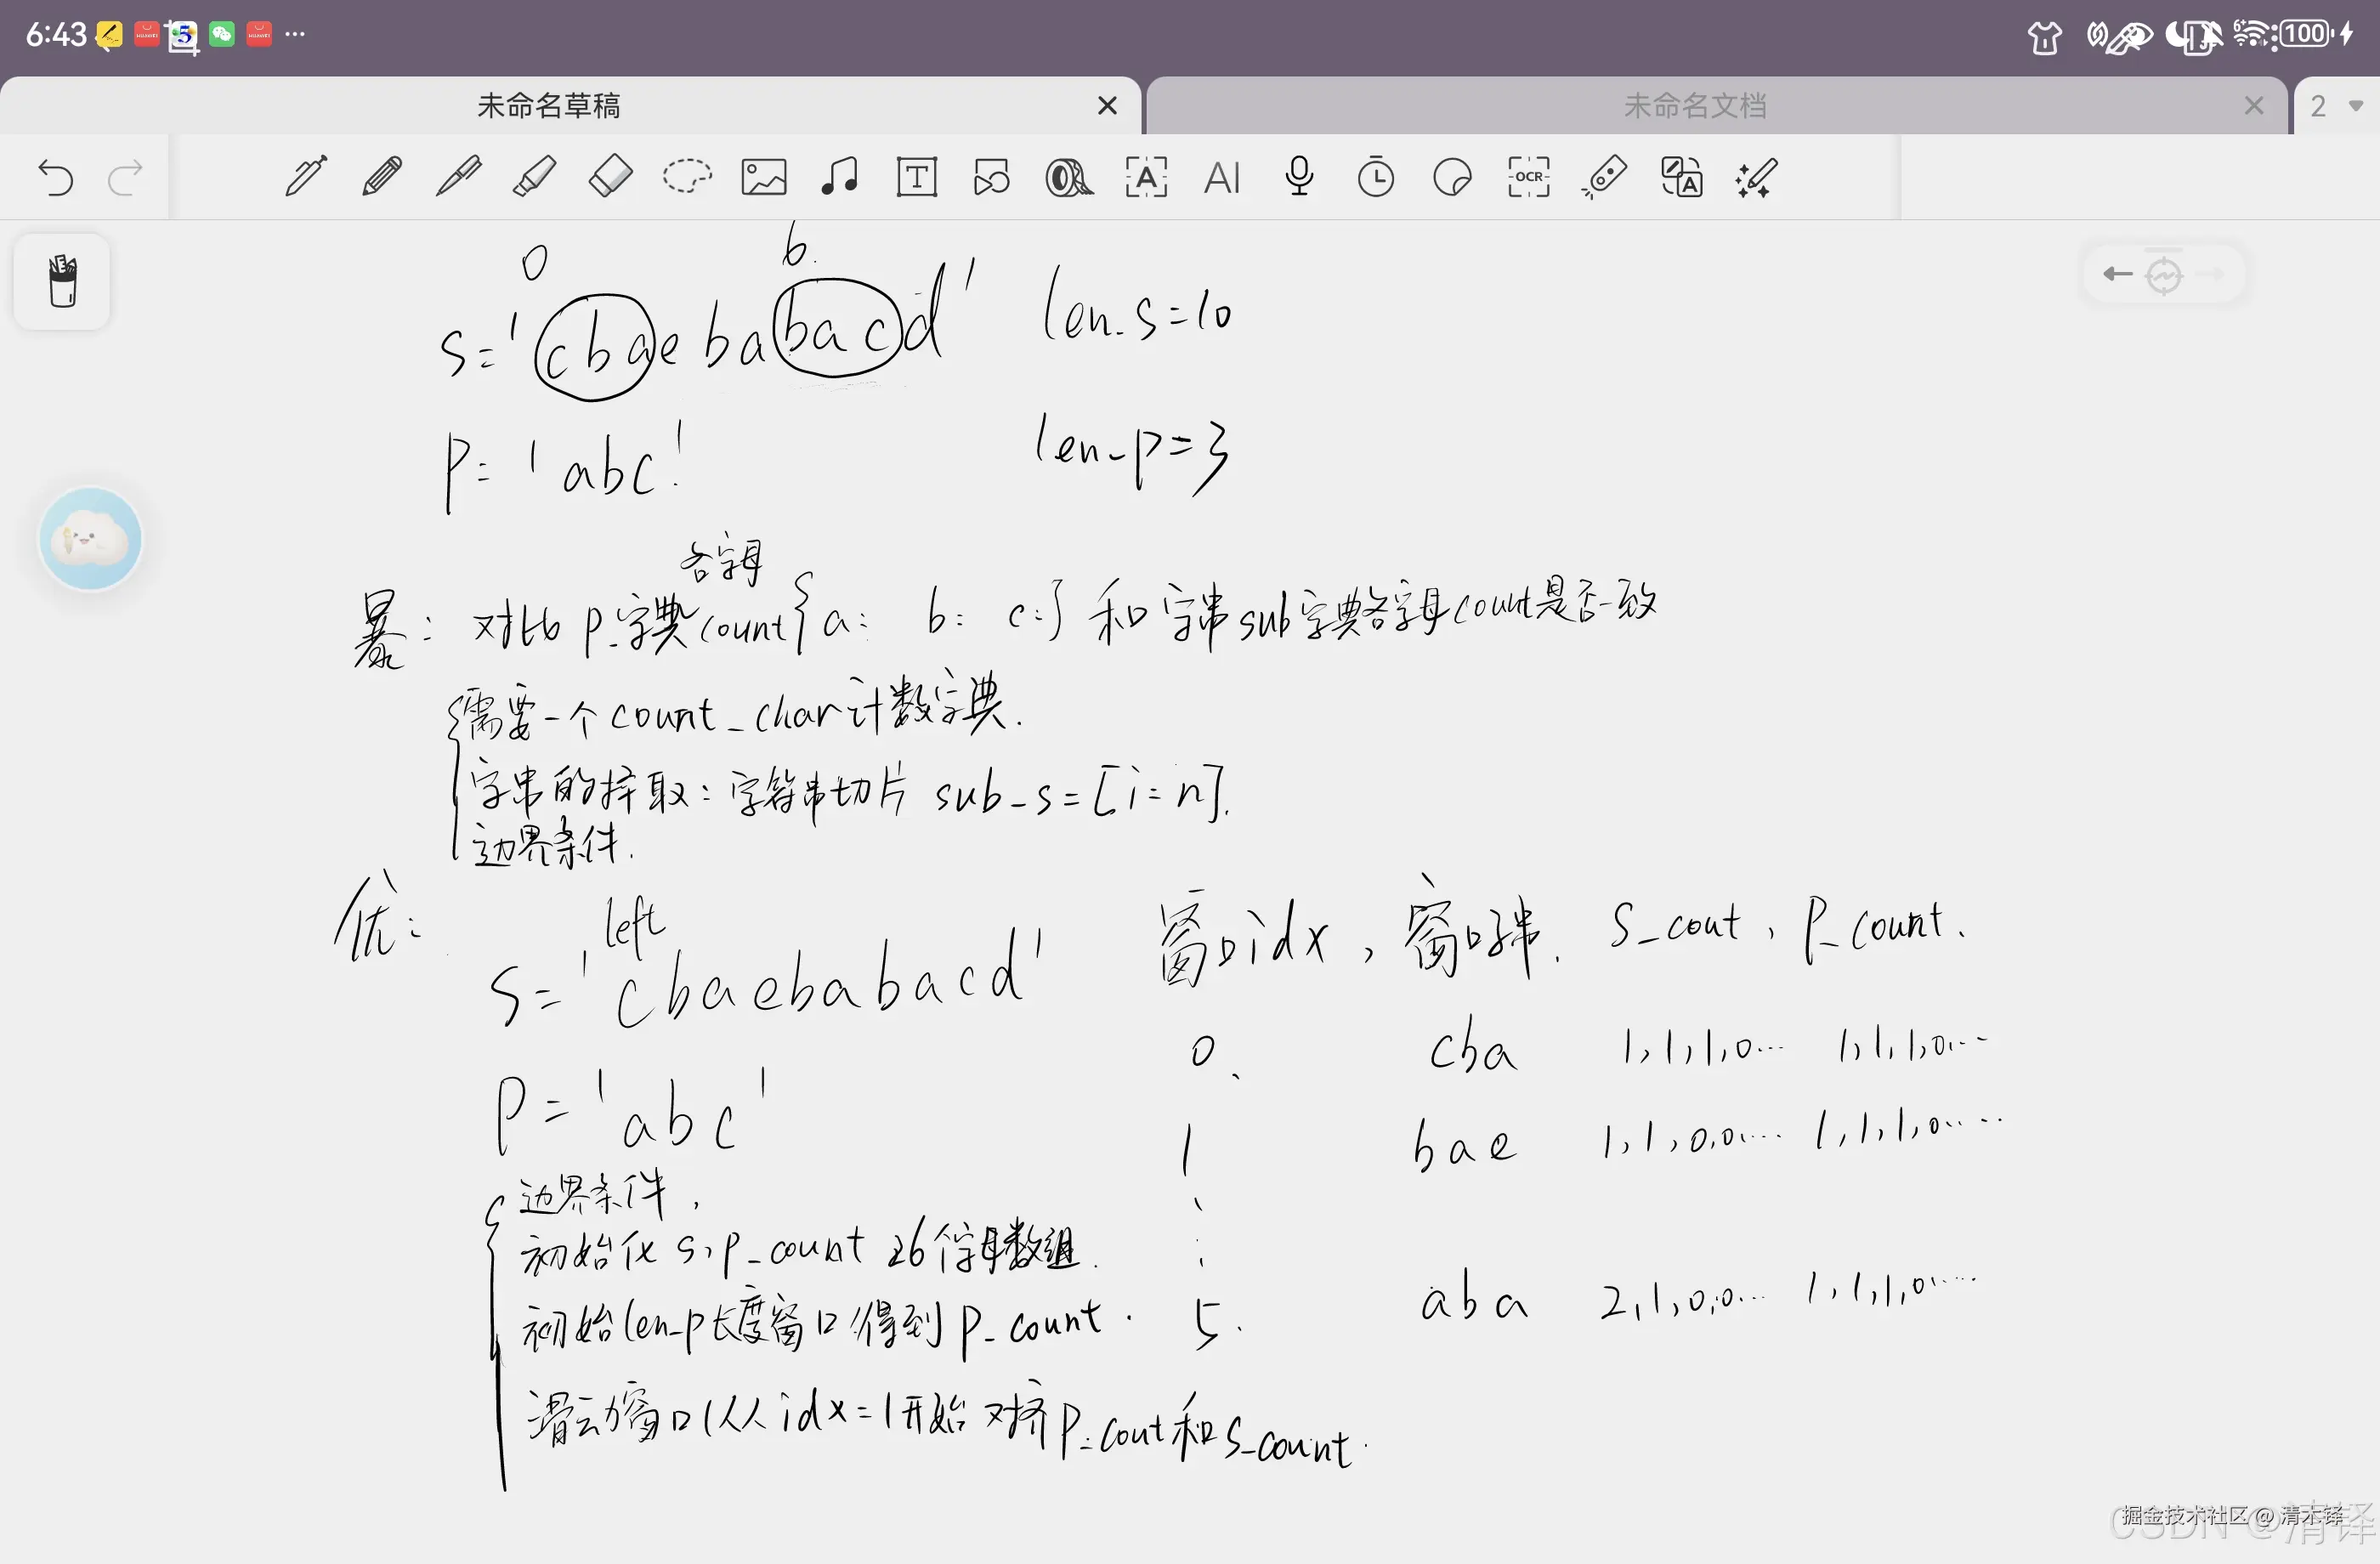 6:43
100
未命名草稿
未命名文档
2
T
A
AI
OCR
A
0 6.
s='cbaebabacd' len_s=10
p='abc' len_p=3
各字母
暴: 对比p_字典count{a: b: c:} 和字串sub字典各字母count是否一致
需要一个count_char计数字典.
字串的择取:字符串切片 sub_s=[i=n].
边界条件.
优:
left
s='cbaebabacd' 窗口idx, 窗口子串. s_cout, p_count.
0. cba 1,1,1,0... 1,1,1,0...
p='abc'
1 bae 1,1,0,0.... 1,1,1,0.....
边界条件,
初始化 s,p_count 26个字母数组.
初始len_p长度窗口得到p_count. 5. aba 2,1,0,0... 1,1,1,0....
滑动窗口(从idx=1开始 对齐p_cout和s_count.
掘金技术社区 @ 清木铎
CSDN @清铎